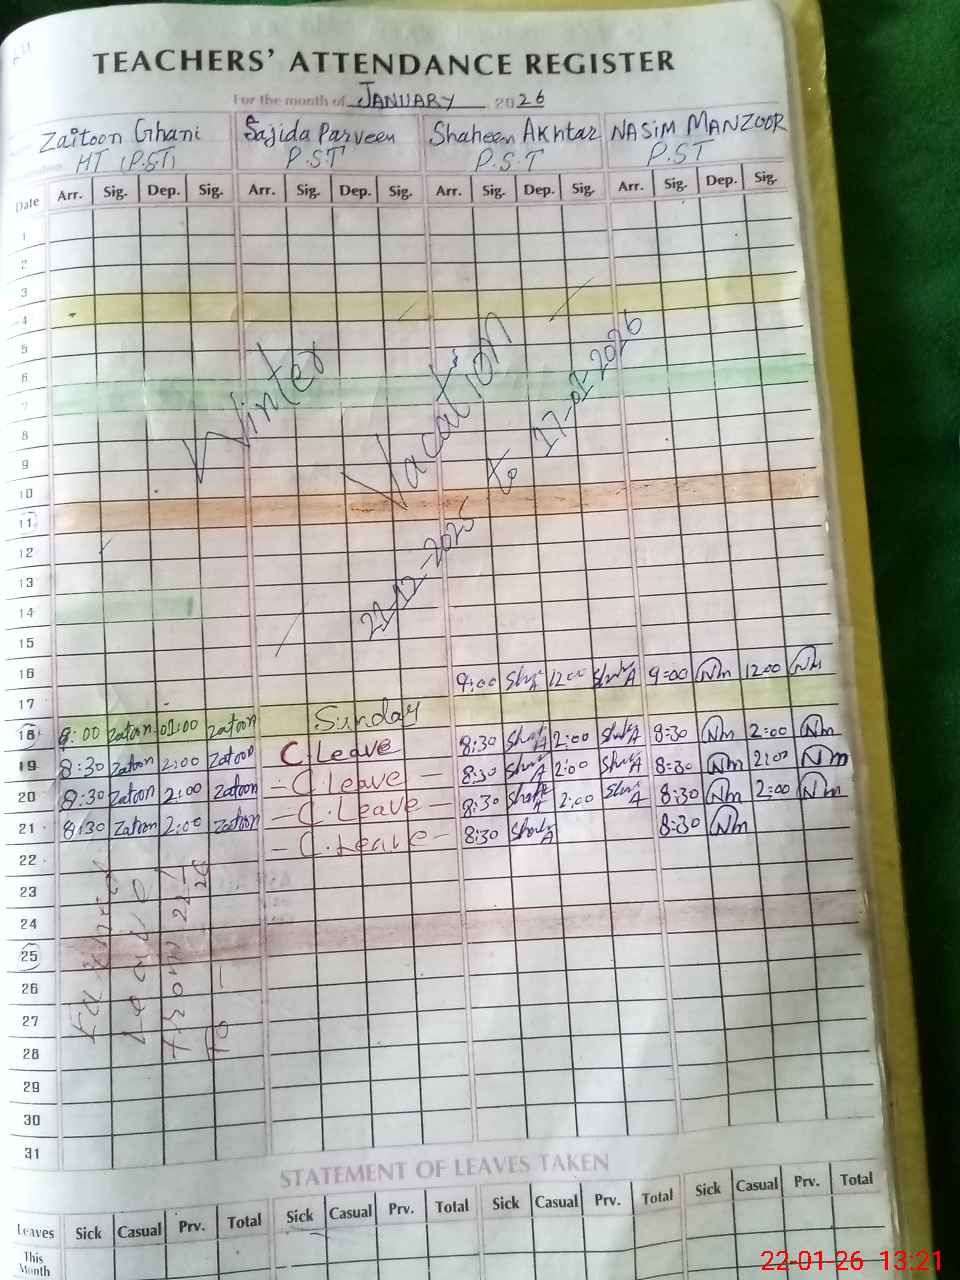 TEACHERS' ATTENDANCE REGISTER
For the month of JANUARY 2026
Zaitoon Ghani Sajida Parveen Shaheen Akhtar NASIM MANZOOR
HT (P.S.T) P.S.T P.S.T P.ST
Date Arr. Sig. Dep. Sig. Arr. Sig. Dep. Sig. Arr. Sig. Dep. Sig. Arr. Sig. Dep. Sig.
1
2
3
4
5
6
7
8
9
10
11
12
13
14
15
16
17
18
19
20
21
22
23
24
25
26
27
28
29
30
31
Winter Vacation
22-12-2025 to 17-01-2026
9:00 12:00 9:00 Nm 12:00 Nm
Sunday
8:00 Zatoon 02:00 Zatoon C.Leave 8:30 2:00 8:30 Nm 2:00 Nm
8:30 Zatoon 2:00 Zatoon - C.Leave - 8:30 2:00 8:30 Nm 2:00 Nm
8:30 Zatoon 2:00 Zatoon - C.Leave 8:30 2:00 8:30 Nm 2:00 Nm
8:30 Zatoon 2:00 Zatoon - C.Leave - 8:30 8:30 Nm
Leave
From 22/1 26
To -
STATEMENT OF LEAVES TAKEN
Leaves Sick Casual Prv. Total Sick Casual Prv. Total Sick Casual Prv. Total Sick Casual Prv. Total
This Month
22-01-26 13:21